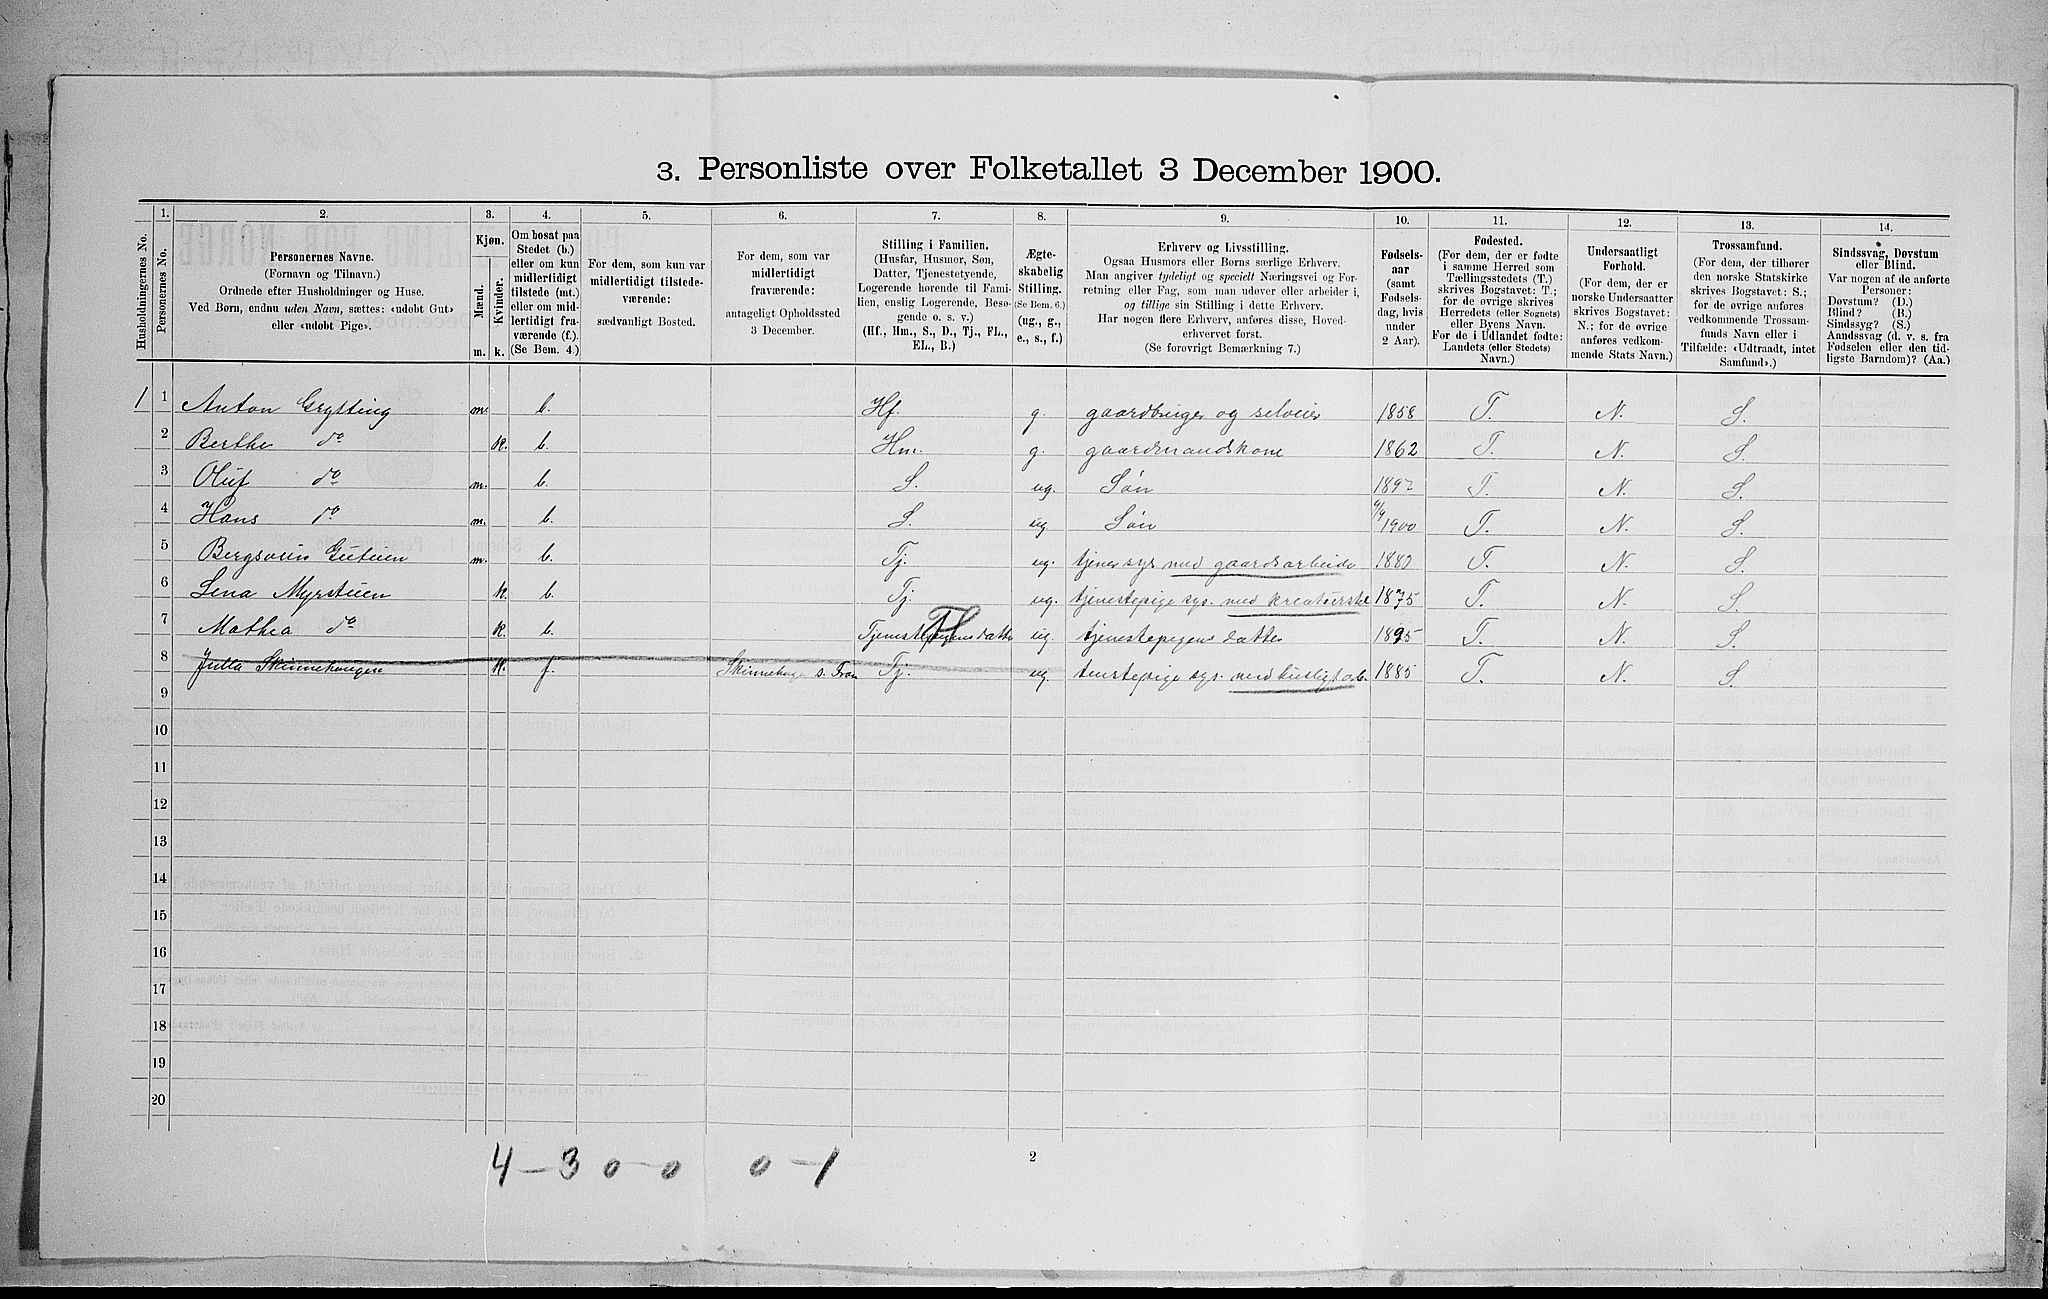 3. Personliste over Folketallet 3 December 1900.
Husholdningernes No.
1. Personernes No.
2. Personernes Navne. (Fornavn og Tilnavn.) Ordnede efter Husholdninger og Huse. Ved Børn, endnu uden Navn, sættes: «udøbt Gut» eller «udøbt Pige».
3. Kjøn. Mænd. Kvinder. m. k.
4. Om bosat paa Stedet (b.) eller om kun midlertidigt tilstede (mt.) eller om midlertidigt fraværende (f.). (Se Bem. 4.)
5. For dem, som kun var midlertidigt tilstedeværende: sædvanligt Bosted.
6. For dem, som var midlertidigt fraværende: antageligt Opholdssted 3 December.
7. Stilling i Familien. (Husfar, Husmor, Søn, Datter, Tjenestetyende, Logerende hørende til Familien, enslig Logerende, Besøgende o. s. v.) (Hf., Hm., S., D., Tj., FL., EL., B.)
8. Ægteskabelig Stilling. (Se Bem. 6.) (ug., g., e., s., f.)
9. Erhverv og Livsstilling. Ogsaa Husmors eller Børns særlige Erhverv. Man angiver tydeligt og specielt Næringsvei og Forretning eller Fag, som man udøver eller arbeider i, og tillige sin Stilling i dette Erhverv. Har nogen flere Erhverv, anføres disse, Hovederhvervet først. (Se forøvrigt Bemærkning 7.)
10. Fødselsaar (samt Fødselsdag, hvis under 2 Aar).
11. Fødested. (For dem, der er fødte i samme Herred som Tællingsstedets (T.) skrives Bogstavet: T.; for de øvrige skrives Herredets (eller Sognets) eller Byens Navn. For de i Udlandet fødte: Landets (eller Stedets) Navn.)
12. Undersaatligt Forhold. (For dem, der er norske Undersaatter skrives Bogstavet: N.; for de øvrige anføres vedkommende Stats Navn.)
13. Trossamfund. (For dem, der tilhører den norske Statskirke skrives Bogstavet: S.; for de øvrige anføres vedkommende Trossamfunds Navn eller i Tilfælde: «Udtraadt, intet Samfund».)
14. Sindssvag, Døvstum eller Blind. Var nogen af de anførte Personer: Døvstum? (D.) Blind? (B.) Sindssyg? (S.) Aandssvag (d. v. s. fra Fødselen eller den tidligste Barndom)? (Aa.)
1 1 Anton Grytting m. b. Hf. g. gaardbruger og selveier 1858 T. N. S.
2 Berthe do k. b. Hm. g. gaardmandskone 1862 T. N. S.
3 Oluf do m. b. S. ug. Søn 1897 T. N. S.
4 Hans do m. b. S. ug Søn 9/9 1900 T. N. S.
5 Bergsvein m. b. Tj. ug. tjener sys med gaardsarbeide 1880 T. N. S.
6 Lena Myrstuen k. b. Tj. ug. tjenestepige sys. med kreaturstel 1875 T. N. S.
7 Mathea do k. b. Tjenestepigens datter ug. tjenestepigens datter 1895 T. N. S.
8 Julla Skinnehaugen k. f. Skinnehaug s. Fron Tj. ug. tenstepige sys. med husligt arb. 1885 T. N. S.
9
10
11
12
13
14
15
16
17
18
19
20
4 – 3 0 – 0 0 – 1
2